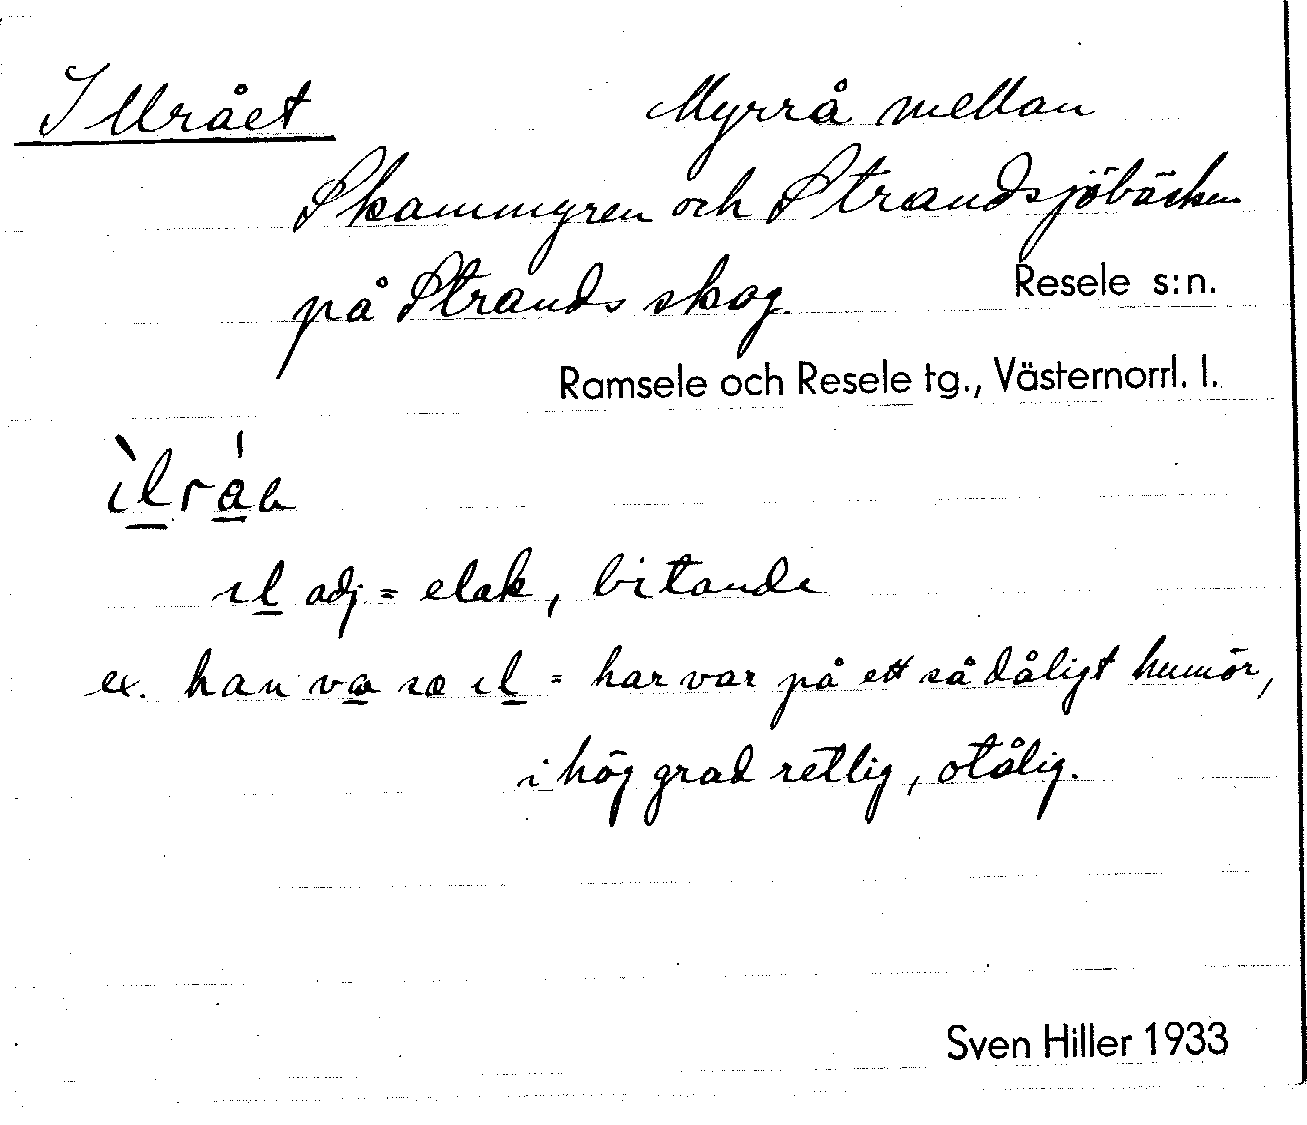 Illrået Myrrå mellan
Skammyren och Strandsjöbäcken
på Strands skog. Resele s:n.
Ramsele och Resele tg., Västernorrl. l.
ìlrá
ıl adj = elak, bitande
ex. han va sæ ıl = han var på ett så dåligt humör,
i hög grad retlig, otålig.
Sven Hiller 1933